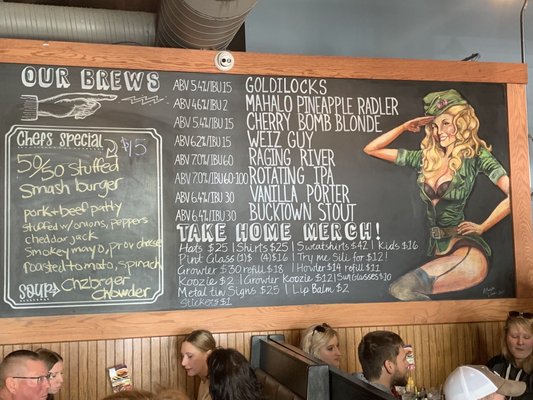 OUR BREWS
Chefs Special
$15
50/50 stuffed
Smash burger
pork+beef patty
stuffed w/onions, peppers
cheddar jack
Smokey mayo, prov cheese
roasted tomato, spinach
SOUP:
Chzbrger
Chowder
ABV 5.4%/IBU 15 GOLDILOCKS
ABV 4.6%/IBU 2 MAHALO PINEAPPLE RADLER
ABV 5.4%/IBU 15 CHERRY BOMB BLONDE
ABV 6.2%/IBU 15 WEIZ GUY
ABV 7.0%/IBU 60 RAGING RIVER
ABV 7.0%/IBU 60-100 ROTATING IPA
ABV 6.4%/IBU 30 VANILLA PORTER
ABV 6.4%/IBU 30 BUCKTOWN STOUT
TAKE HOME MERCH!
Hats $25 | Shirts $25 | Sweatshirts $42 | Kids $16
Pint Glass (1)$ (4)$16 | Try me Sill for $12!
Growler $30 refill $18 | Howler $14 refill $11
Koozie $2 | Growler Koozie $12 | Sunglasses $10
Metal tin Signs $25 | Lip Balm $2
Stickers $1